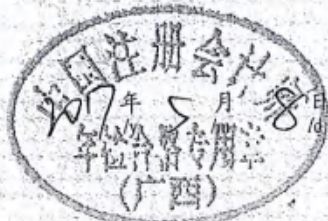 中国注册会计师
2017年5月8日
/y /m /d
年检合格专用章
(广西)